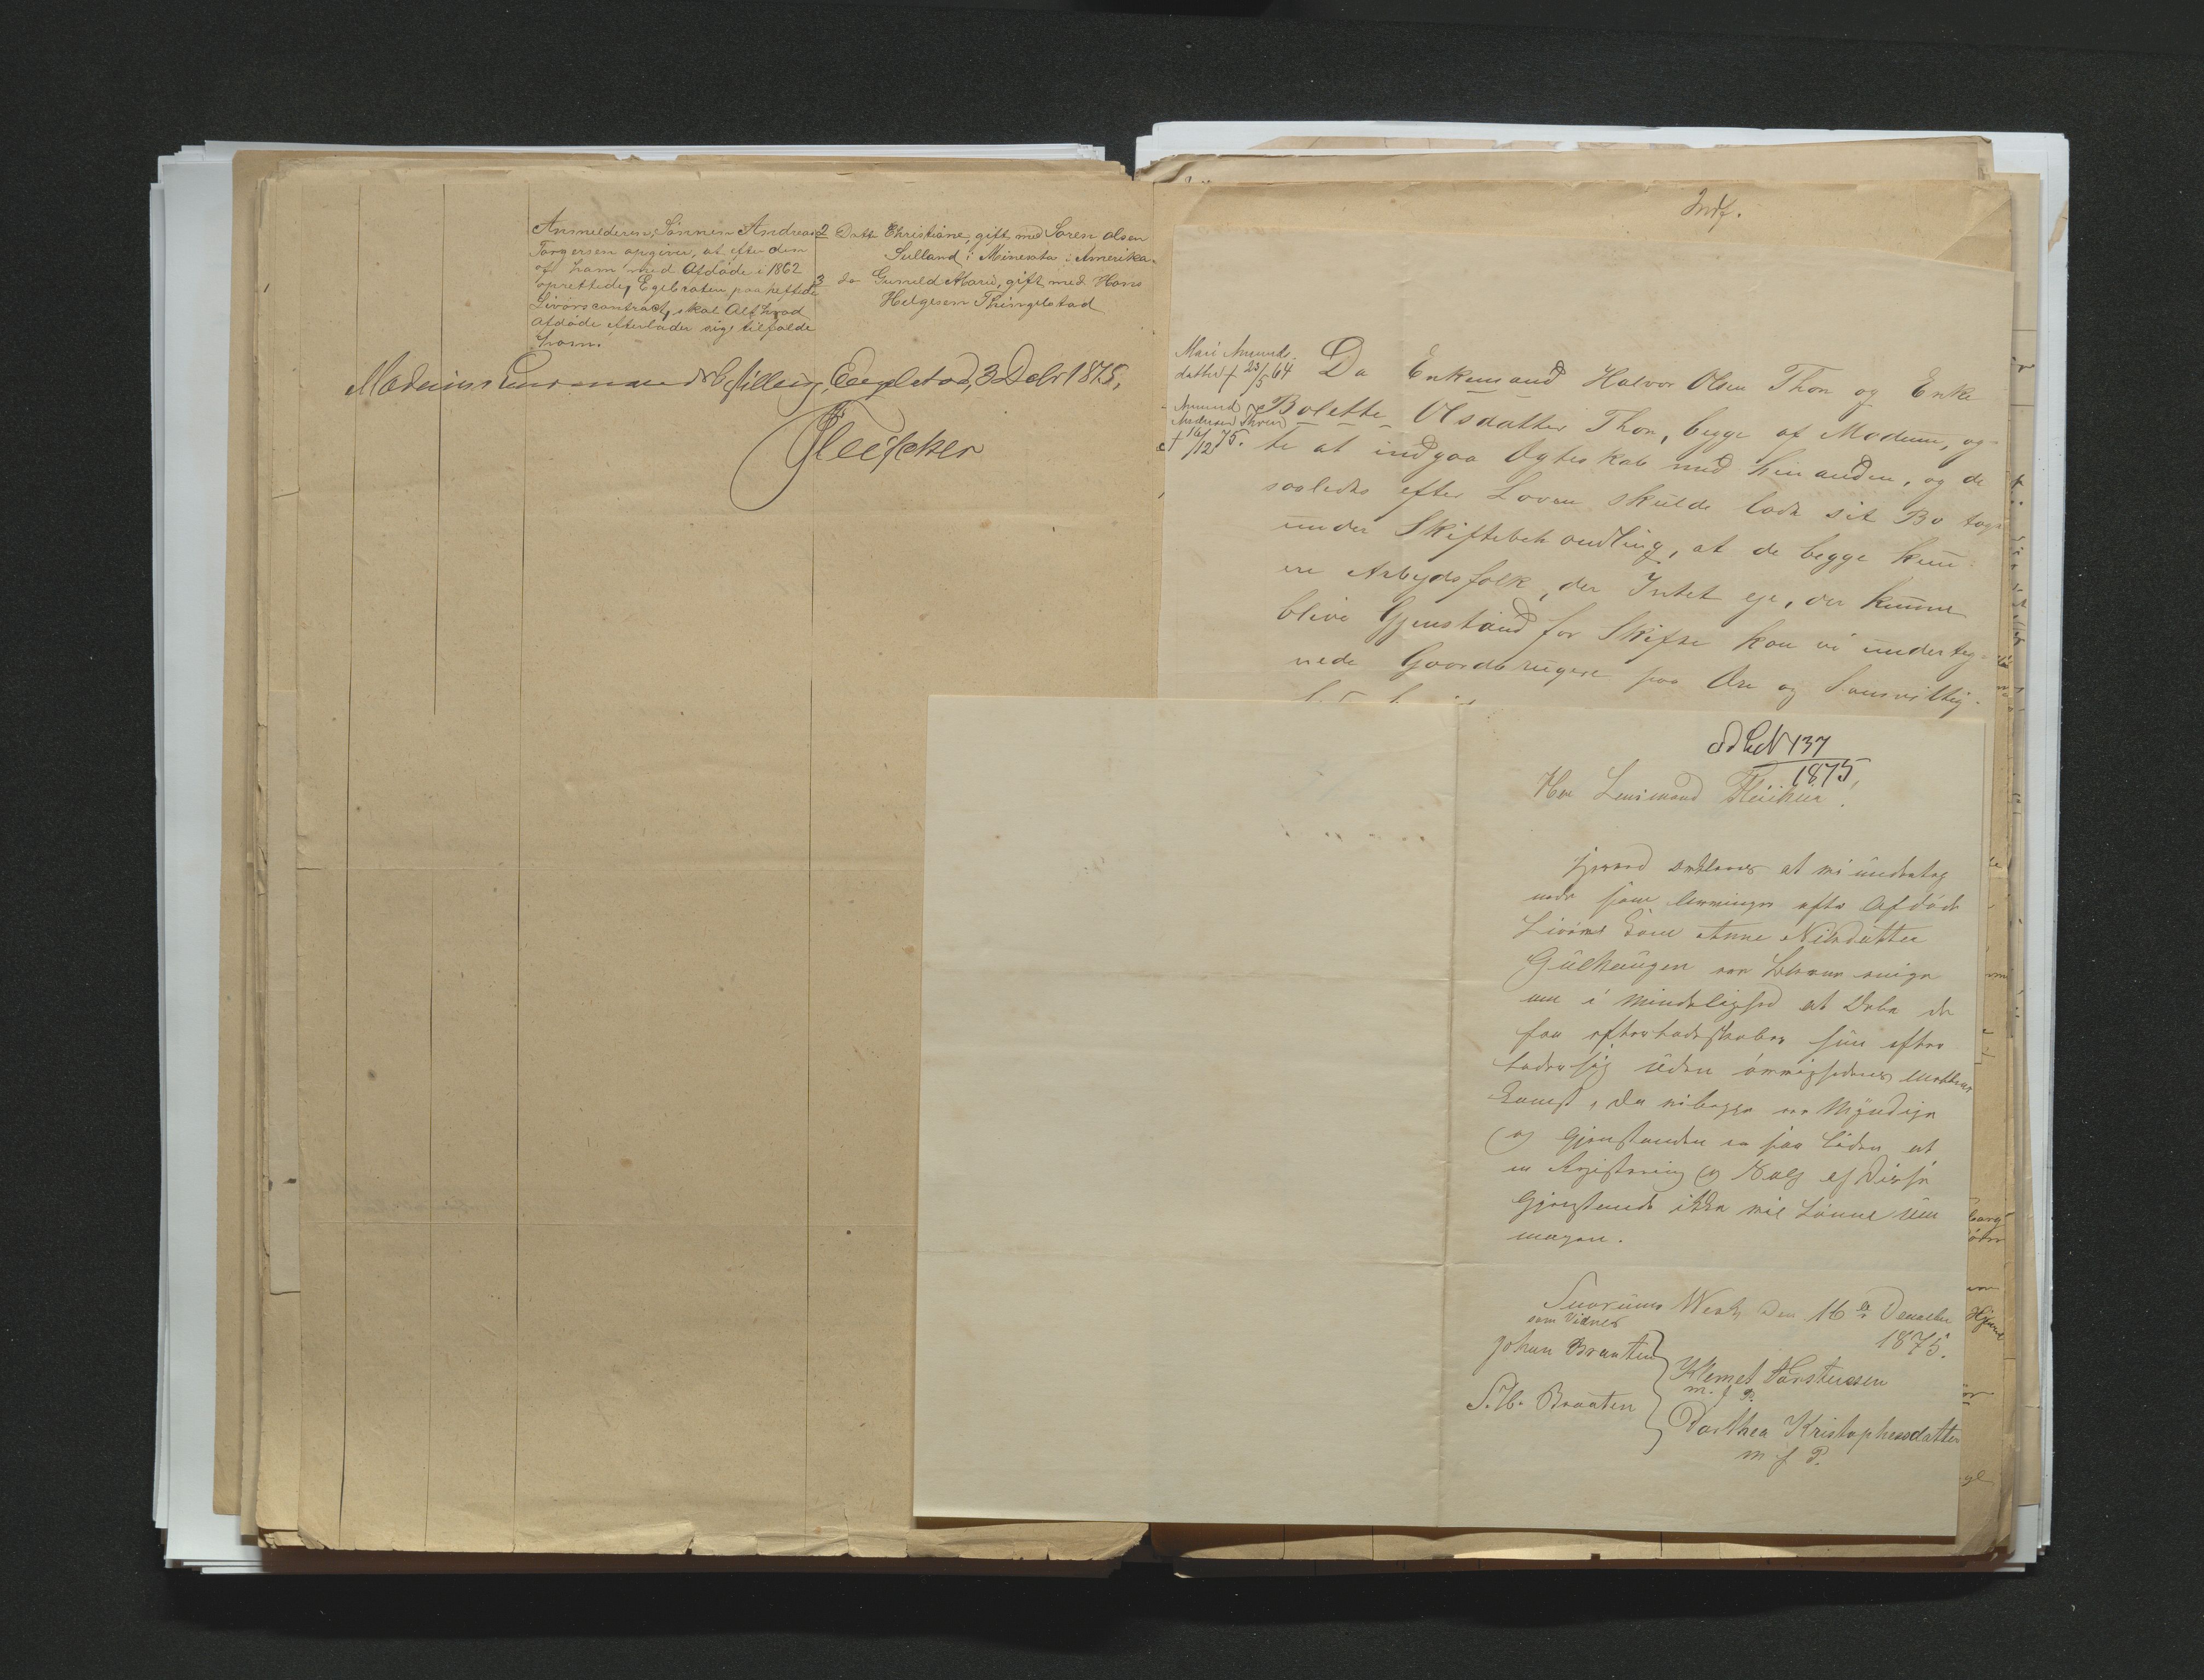 Anmelderen, Sønnen Andreas
Torgersen opgiver, at efter den
af ham med Afdøde i 1862
oprettede, Egebraten paaheftede
Livörscontract, skal Alt hvad
Afdøde efterlader sig, tilfalde
ham.
2 Datt. Christiane, gift med Søren Olsen
Sulland i Minesota i Amerika.
3 do Gunild Marie, gift med Hans
Helgesen Thingelstad
Modums Lensmandsbestilling, 3 Decbr 1875,
Fleischer
Indf.
Mari Amunds.
datter † 23/5 64
Amund
Andersen Thoen
† 16/12 75.
Da Enkemand Halvor Olsen Thon og Enke
Bolette Olsdatter Thon, begge af Modum, og-
te at indgaa Ægteskab med hinanden, og de
saaledes efter Loven skulde lade sit Bo tage
under Skiftebehandling, at de begge kun
ere Arbejdsfolk, der Intet eje, der kunne
blive Gjenstand for Skifte kan vi underteg-
nede Gaardbrugere paa Ære og Samvittig-
ad No 137
1875,
Herr Lensmand Fleischer.
hervred at vi underteg
nede som Arvinger efter Afdøde
Livörs Kone Anne Nilsdatter
Gulhaugen er blevne enige
om i Mindelighed at Dele de
faa Efterladenskaber hun efter
lader sig uden
komst, da vi begge er Myndige
og Gjenstanden er saa Liden at
en Registrering og Salg af Disse
Gjenstande ikke vil Lønne Um
magen.
Snarums Werk, den 16de December
1875.
som Vidner
Johan Braaten
S. H. Braaten
Klemet Torstensen
m. f P.
Dorthea Kristophersdatter
m f P.